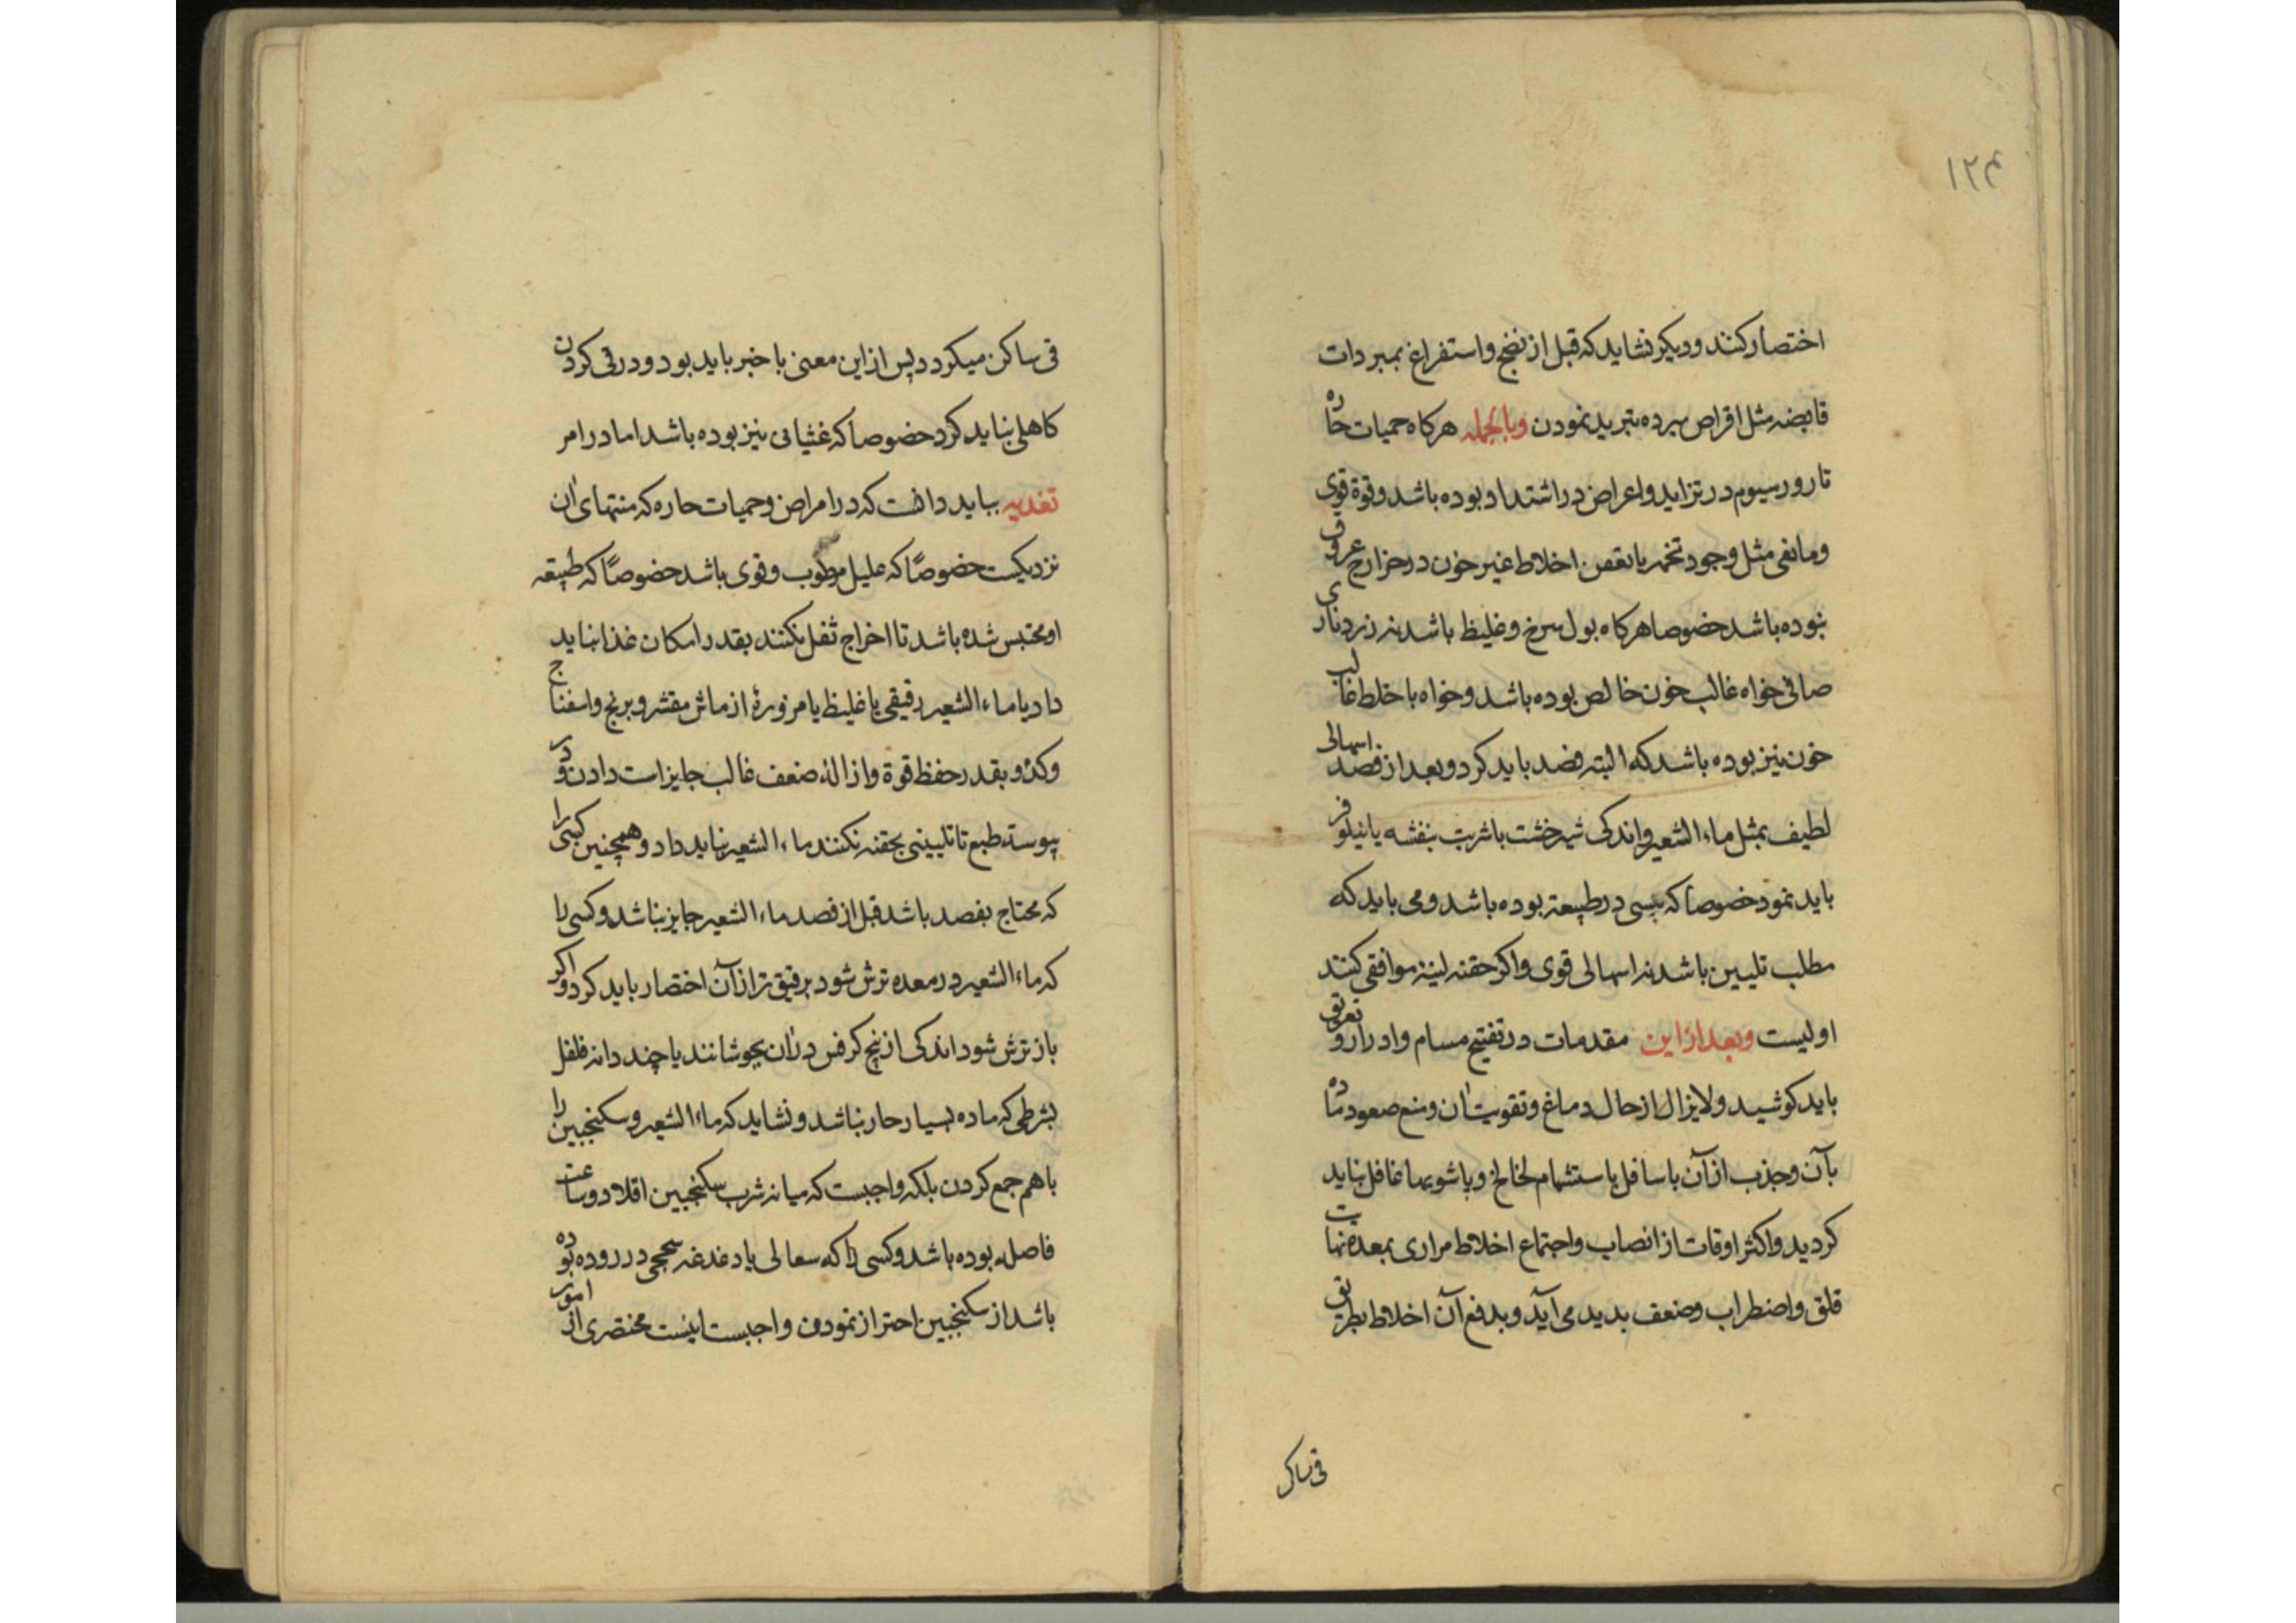 ۱۲۴
اختصار کنند و دیگر نشاید که قبل از نضج و استفراغ بمبردات
قابضه مثل اقراص مبرده تبرید نمودن وبالجمله هرکاه حمیات حاره
تا روز سیوم در تزاید و اعراض در اشتداد بوده باشد و قوة قوی
و مانعی مثل وجود تخمه یا نقص اخلاط غیر خون در خارج عروق
نبوده باشد خصوصا هرکاه بول سرخ و غلیظ باشد نه زرد ناری
صافی خواه غالب خون خالص بوده باشد و خواه با خلط غالب
خون نیز بوده باشد که البته فصد باید کرد و بعد از فصد اسهالی
لطیف بمثل ماء الشعیر و اندکی شیرخشت با شربت بنفشه یا نیلوفر
باید نمود خصوصا که یبسی در طبیعة بوده باشد و می باید که
مطلب تلیین باشد نه اسهالی قوی و اکر حقنه لینه موافقی کنند
اولیست وبعد از این مقدمات در تفتیح مسام و ادرار و تعریق
باید کوشید و لایزال از حال دماغ و تقویت آن و منع صعود ماده
بآن و جذب از آن باسافل باستشمام لخالخ و پاشویها غافل نباید
کردید و اکثر اوقات از انصاب و اجتماع اخلاط مراری بمعده نهایت
قلق و اضطراب و ضعف بدید می آید و بدفع آن اخلاط بطریق
قی ساکن
قی ساکن میکردد پس از این معنی با خبر باید بود و در قی کردن
کاهلی نباید کرد خصوصا که غثیانی نیز بوده باشد اما در امر
تغذیه بباید دانست که در امراض و حمیات حاره که منتهای آن
نزدیکست خصوصًا که علیل مرطوب و قوی باشد خصوصًا که طبیعه
او محتبس شده باشد تا اخراج ثفل نکنند بقدر امکان غذا نباید
داد یا ماء الشعیر رقیقی یا غلیظ یا مزورهٔ از ماش مقشر و برنج و اسفناج
و کدو بقدر حفظ قوة و ازالهٔ ضعف غالب جایز است دادن و در
پیوسته طبع تا تلیینی بحقنه نکنند ماء الشعیر نباید داد و همچنین کسی را
که محتاج بفصد باشد قبل از فصد ماء الشعیر جایز نباشد و کسی را
که ماء الشعیر در معده ترش شود برقیق تر از آن اختصار باید کرد و اکر
باز ترش شود اندکی از بیخ کرفس در آن بجوشانند یا چند دانه فلفل
بشرطی که ماده بسیار حار نباشد و نشاید که ماء الشعیر و سکنجبین را
با هم جمع کردن بلکه واجبست که میانه شرب سکنجبین اقلا دو ساعت
فاصله بوده باشد و کسی را که سعالی یا دغدغه سحجی در روده بوده
باشد از سکنجبین احتراز نمودن واجبست اینست مختصری از امور